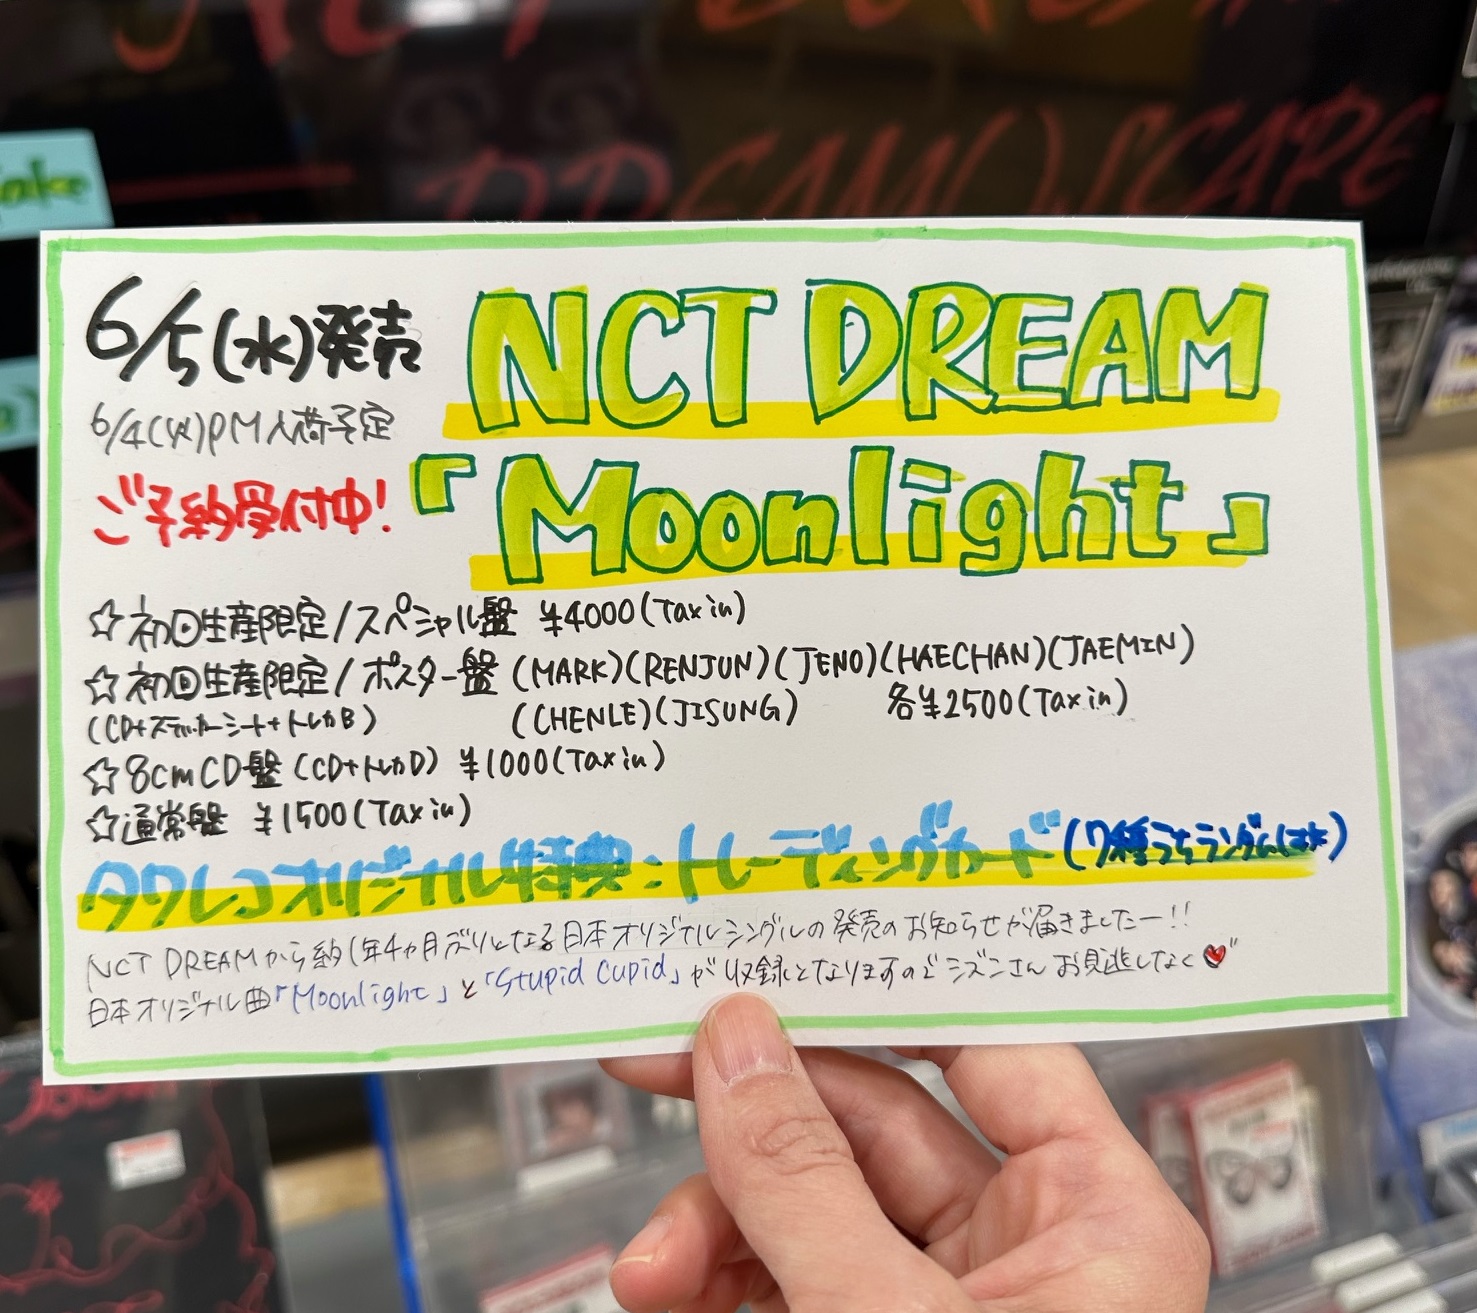 NCT
DREAM()SCAPE
6/5(水)発売
NCT DREAM
6/4(火)PM入荷予定
ご予約受付中!
「Moonlight」
☆初回生産限定/スペシャル盤 ¥4000(Tax in)
☆初回生産限定/ポスター盤 (MARK)(RENJUN)(JENO)(HAECHAN)(JAEMIN)
(CD+ステッカーシート+トレカB) (CHENLE)(JISUNG) 各¥2500(Tax in)
☆8cmCD盤(CD+トレカD) ¥1000(Tax in)
☆通常盤 ¥1500(Tax in)
タワレコオリジナル特典:トレーディングカード(7種うちランダム1枚)
NCT DREAMから約1年4ヵ月ぶりとなる日本オリジナルシングルの発売のお知らせが届きましたー!!
日本オリジナル曲「Moonlight」と「Stupid Cupid」が収録となりますのでシズニさんお見逃しなく♥